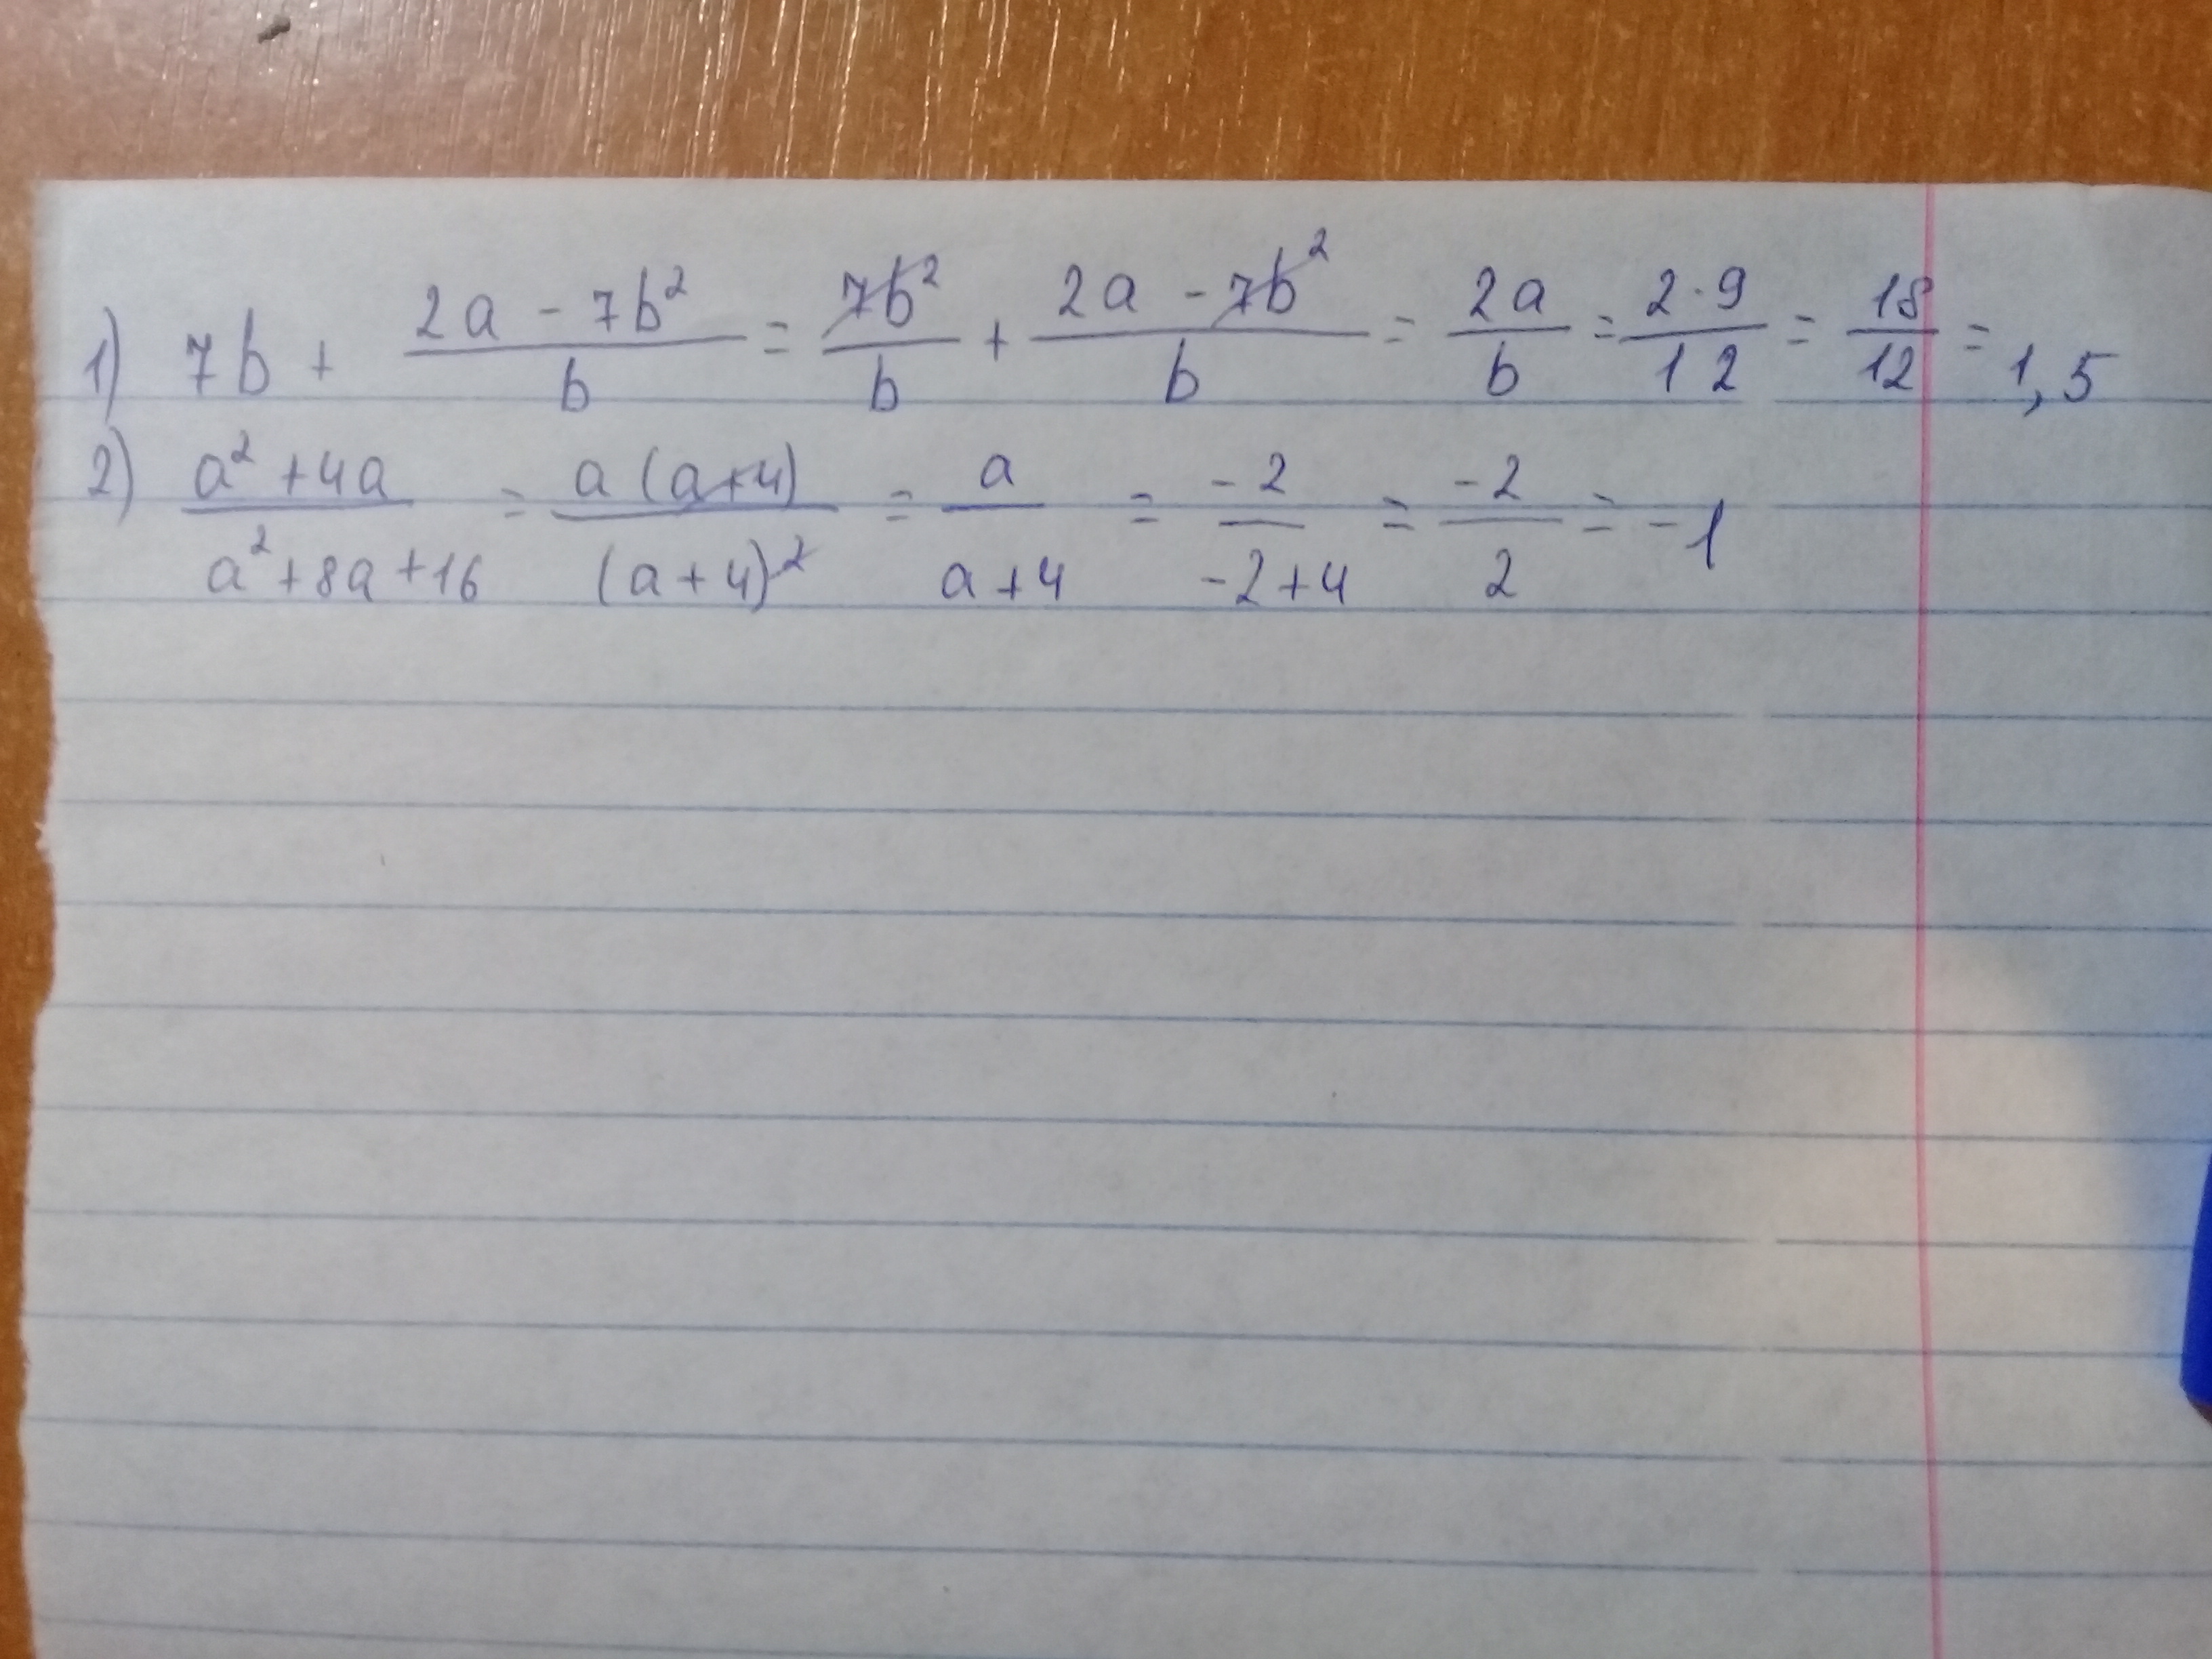 1) 7b + (2a - 7b²)/b = 7b²/b + (2a - 7b²)/b = 2a/b = (2·9)/12 = 18/12 = 1,5
2) (a² + 4a)/(a² + 8a + 16) = a(a+4)/(a+4)² = a/(a+4) = -2/(-2+4) = -2/2 = -1